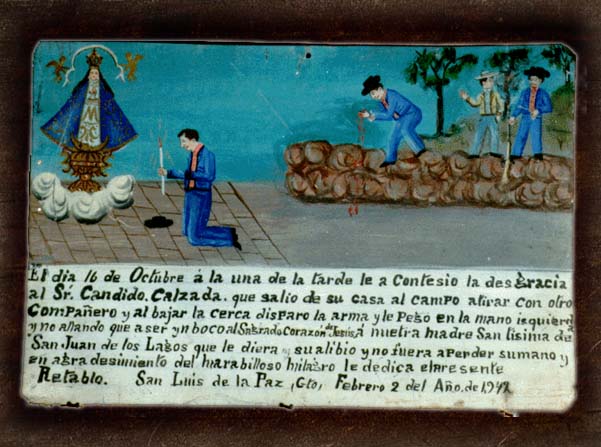 El dia 16 de Octubre á la una de la tarde le a Contesio la desgracia
al Sr. Candido. Calzada. que salio de su casa al campo atirar con otro
Compañero y al bajar la cerca disparo la arma y le Pego en la mano isquierd
y no allando que aser ynboco al Sagrado Corazon de Jesús, á nuetra madre San tisima de
San Juan de los Lagos que le diera sualibio y no fuera aperder sumano y
en agradesimiento del marabilloso milagro le dedica elpresente
Retablo. San Luis de la Paz, Gto, Febrero 2 del Año, de